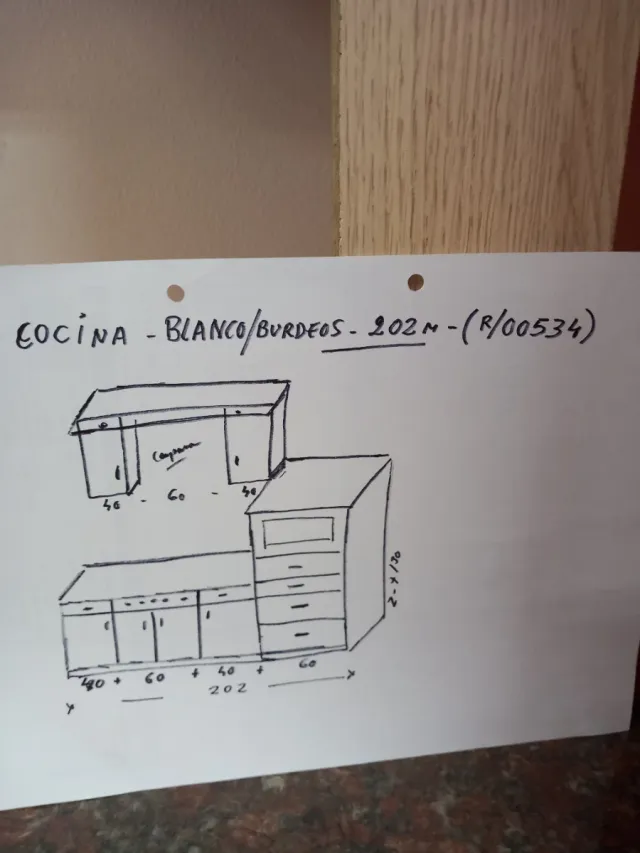 COCINA - BLANCO/BURDEOS - 202 M - (R/00534)
Campana
40 - 60 - 40
40 + 60 + 40 + 60
x 202 x